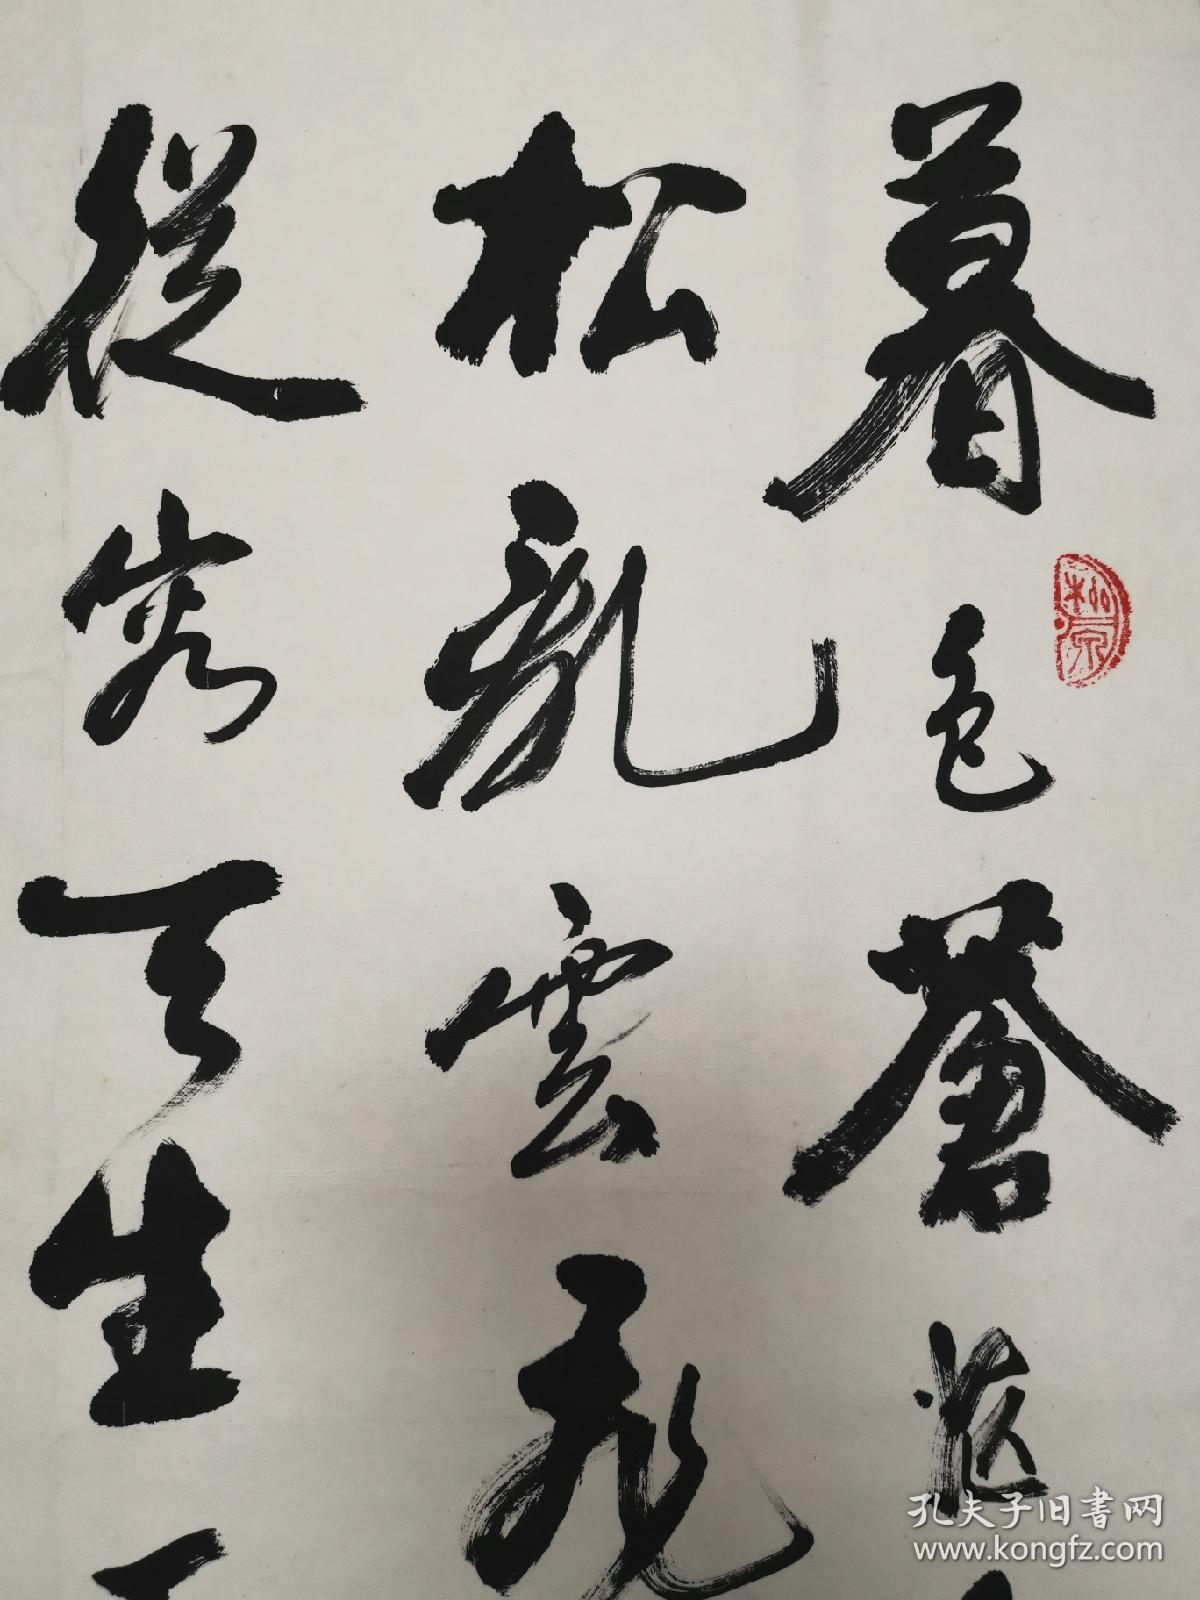 暮色蒼茫
松亂雲飛
從容天生一
孔夫子旧书网
www.kongfz.com